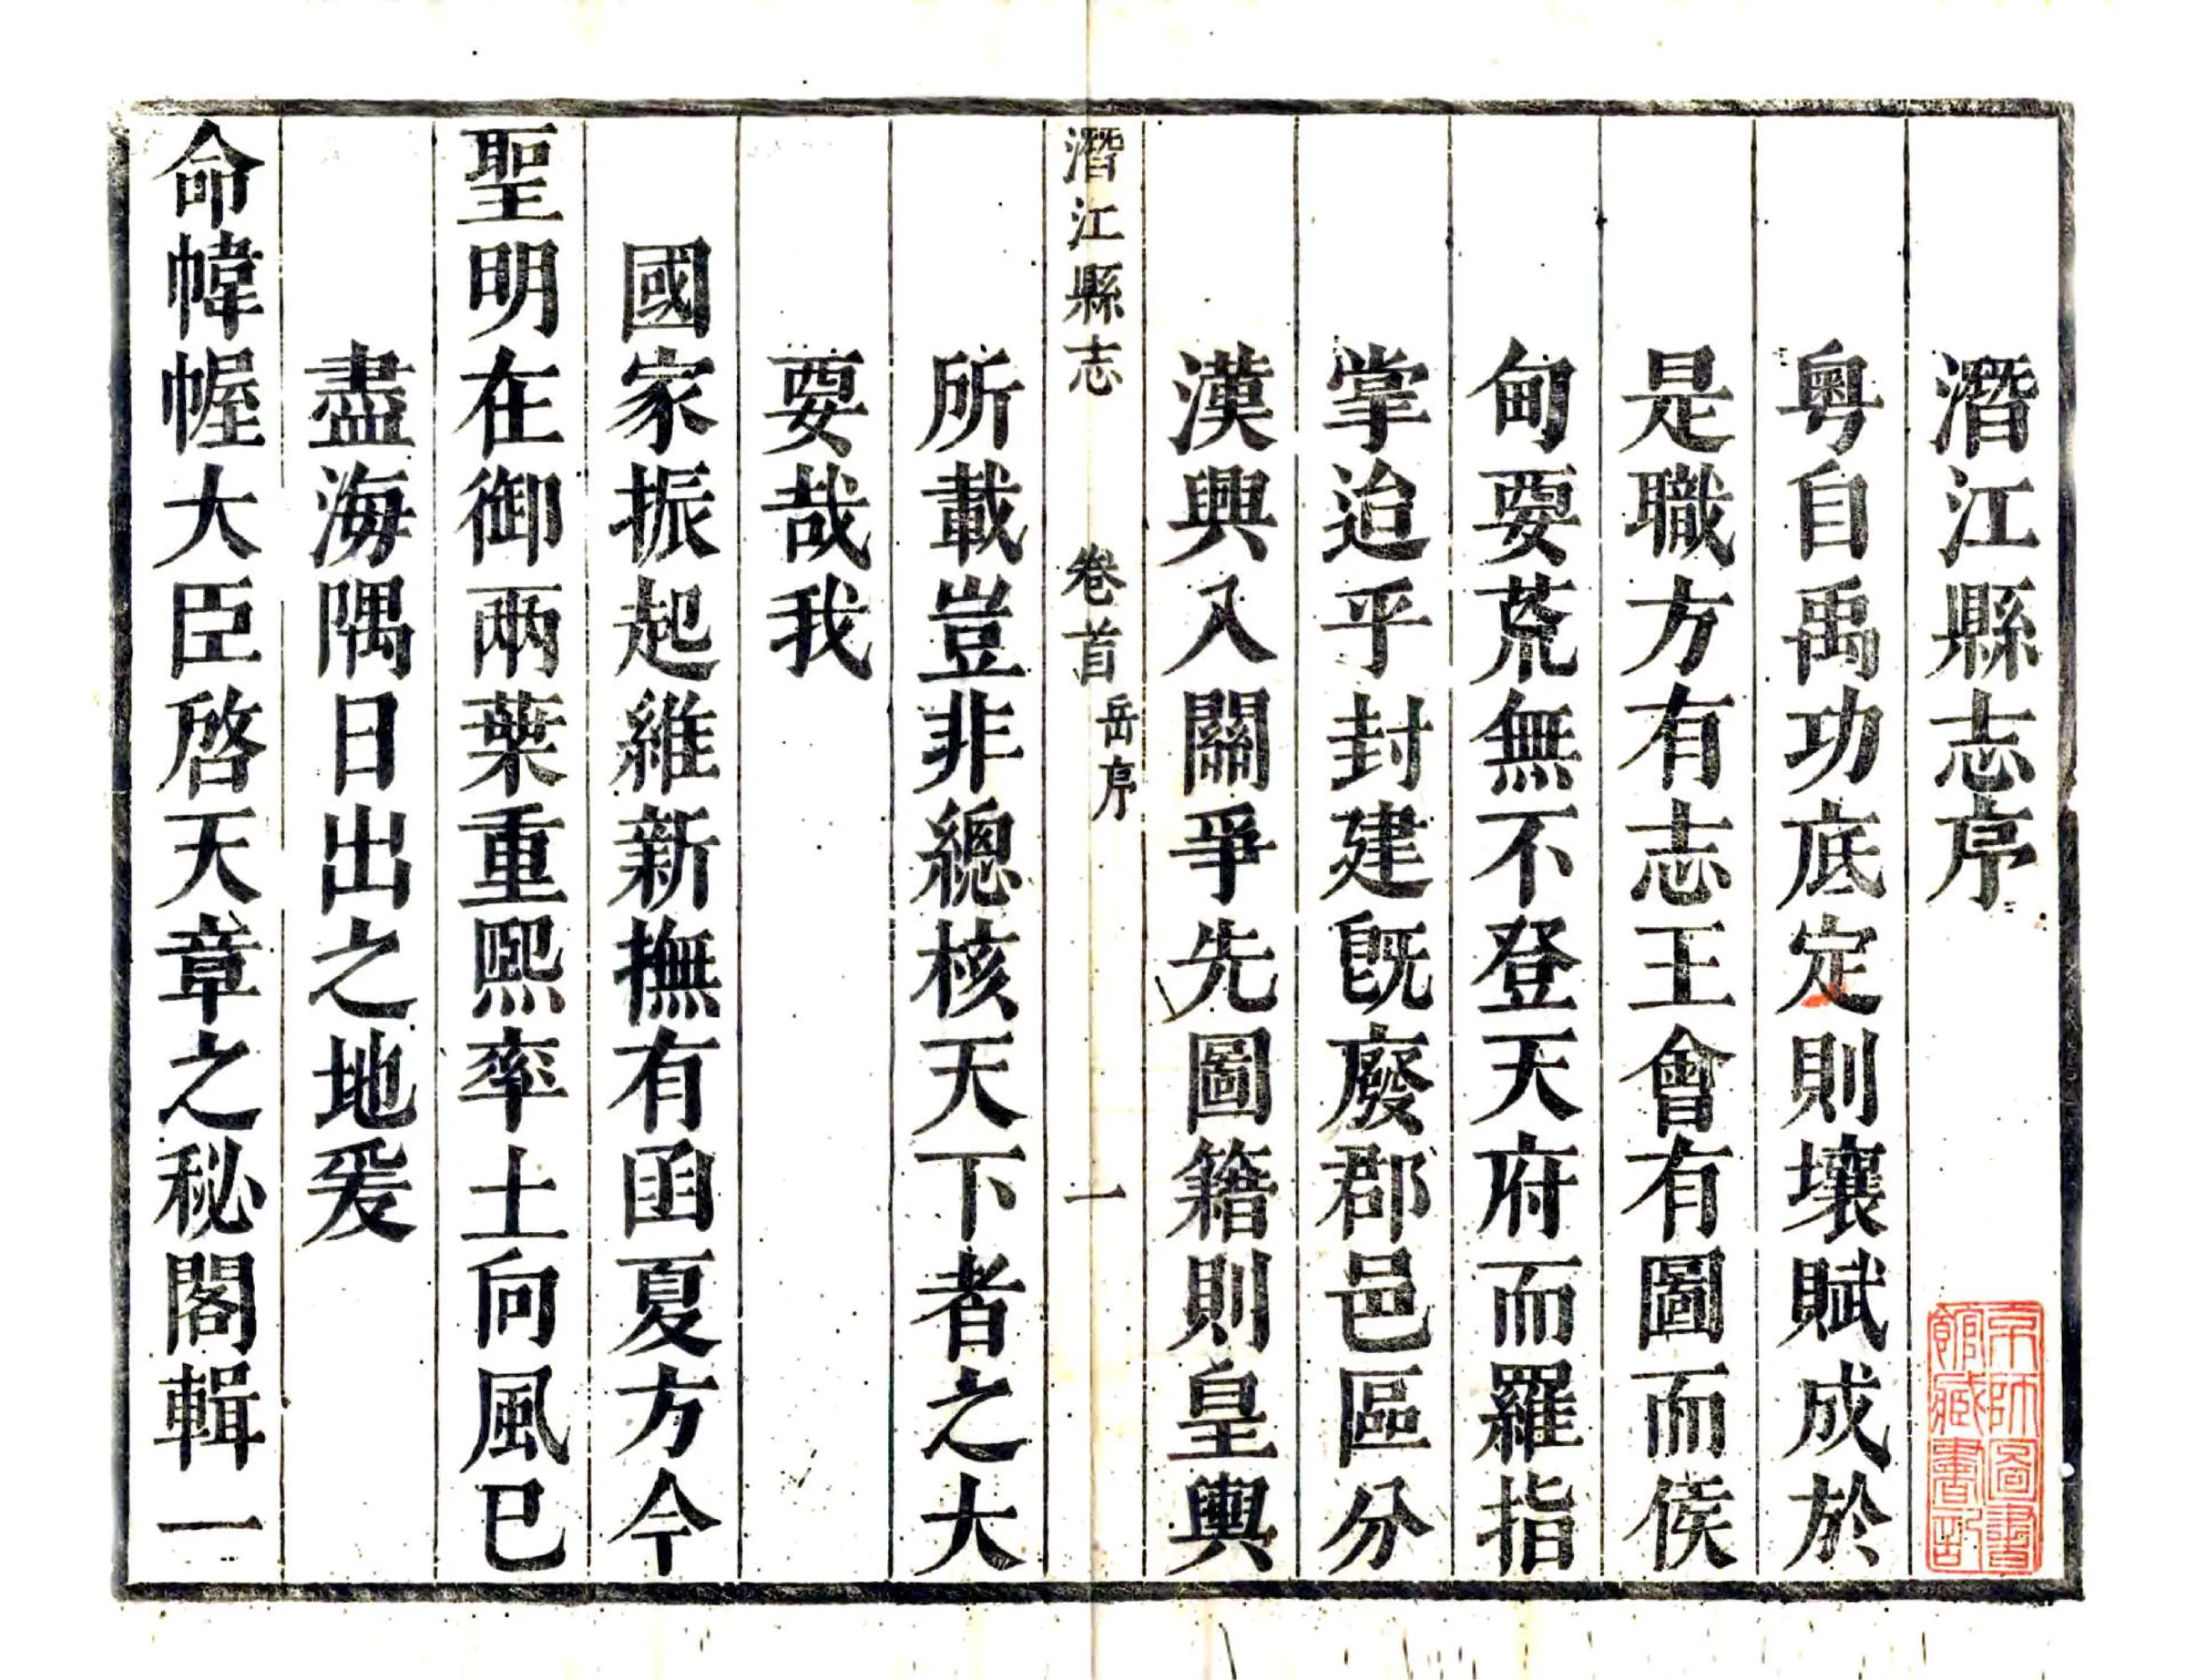 潛江縣志序
粵自禹功底定則壤賦成於
是職方有志王會有圖而侯
甸要荒無不登天府而羅指
掌迨乎封建旣廢郡邑區分
漢興入關爭先圖籍則皇輿
潛江縣志 卷首 岳序 一
所載豈非總核天下者之大
要哉我
國家振起維新撫有函夏方今
聖明在御兩葉重熙率土向風已
盡海隅日出之地爰
命幃幄大臣啓天章之秘閣輯一
京師圖書
館藏書記